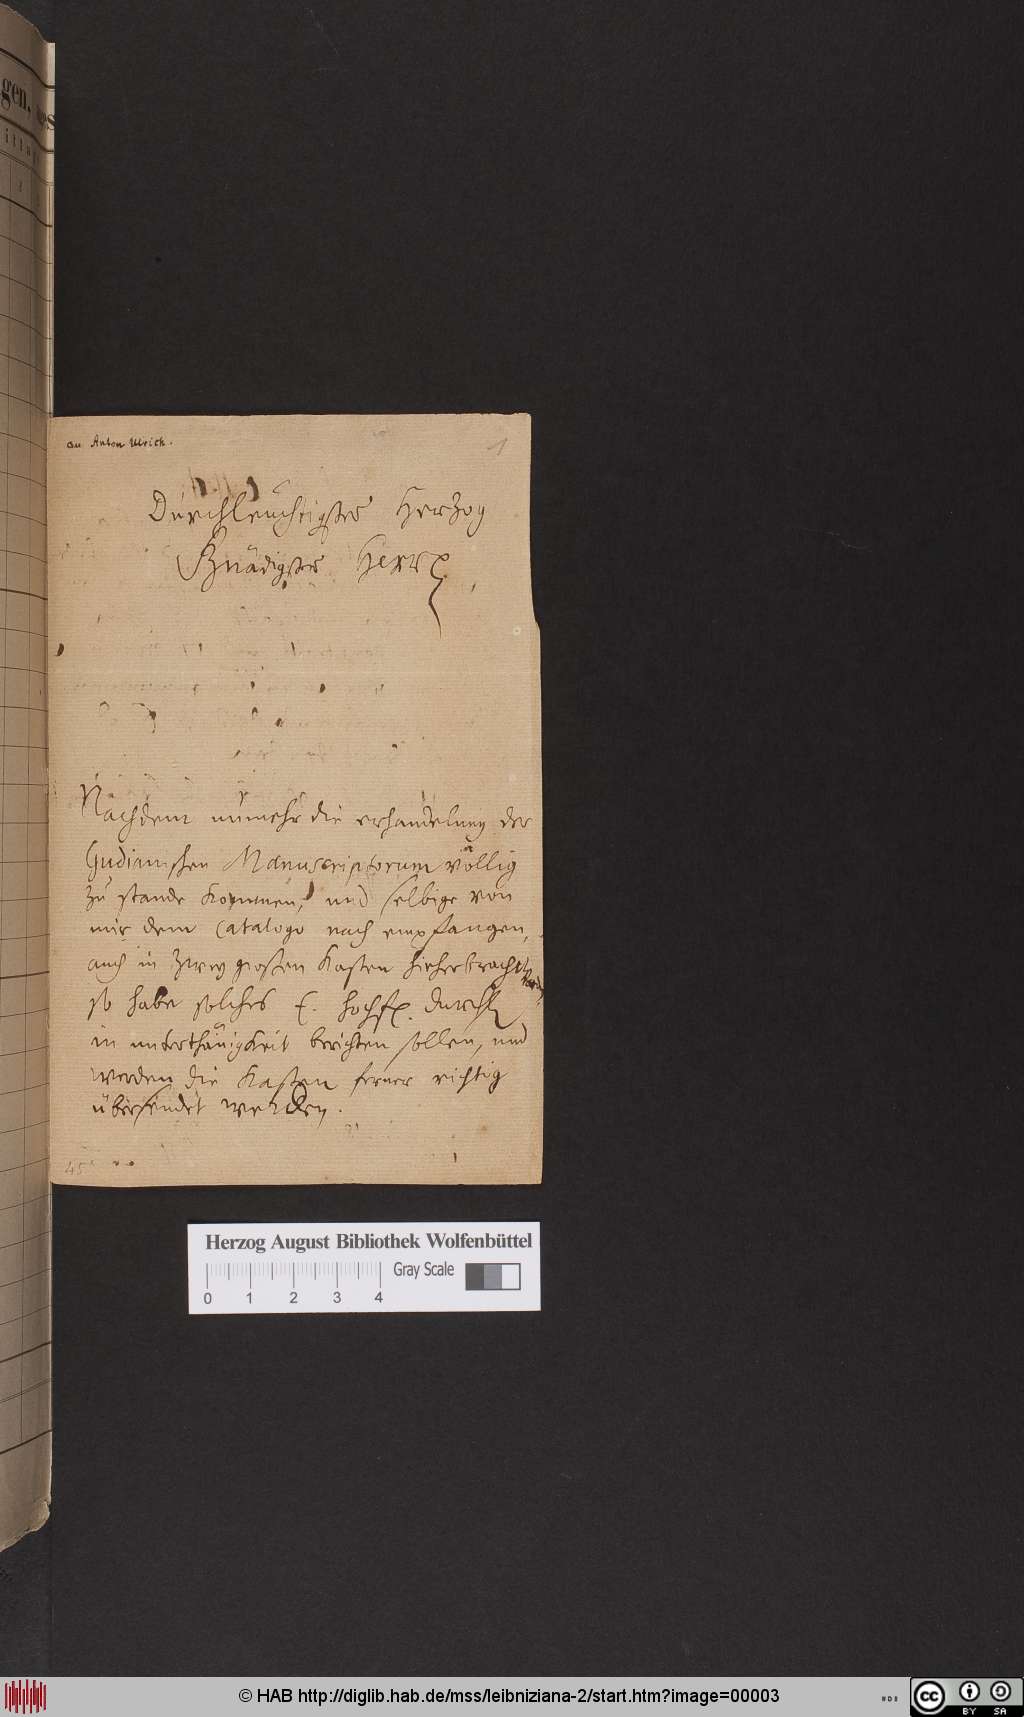 gen,
an Anton Ulrich.
1
Durchleuchtigster Herzog
Gnädigster Herr
Nachdem nunmehr die erhandelung der
Gudianischen Manuscriptorum völlig
zu stande kommen, und selbige von
mir dem Catalogo nach empfangen,
auch in zwey großen Kasten hieherbracht worden,
so habe solches E. hochfl. Durchl
in unterthänigkeit berichten sollen, und
werden die Kasten ferner richtig
übersendet werden.
45
Herzog August Bibliothek Wolfenbüttel
Gray Scale
0 1 2 3 4
© HAB http://diglib.hab.de/mss/leibniziana-2/start.htm?image=00003
cc BY SA